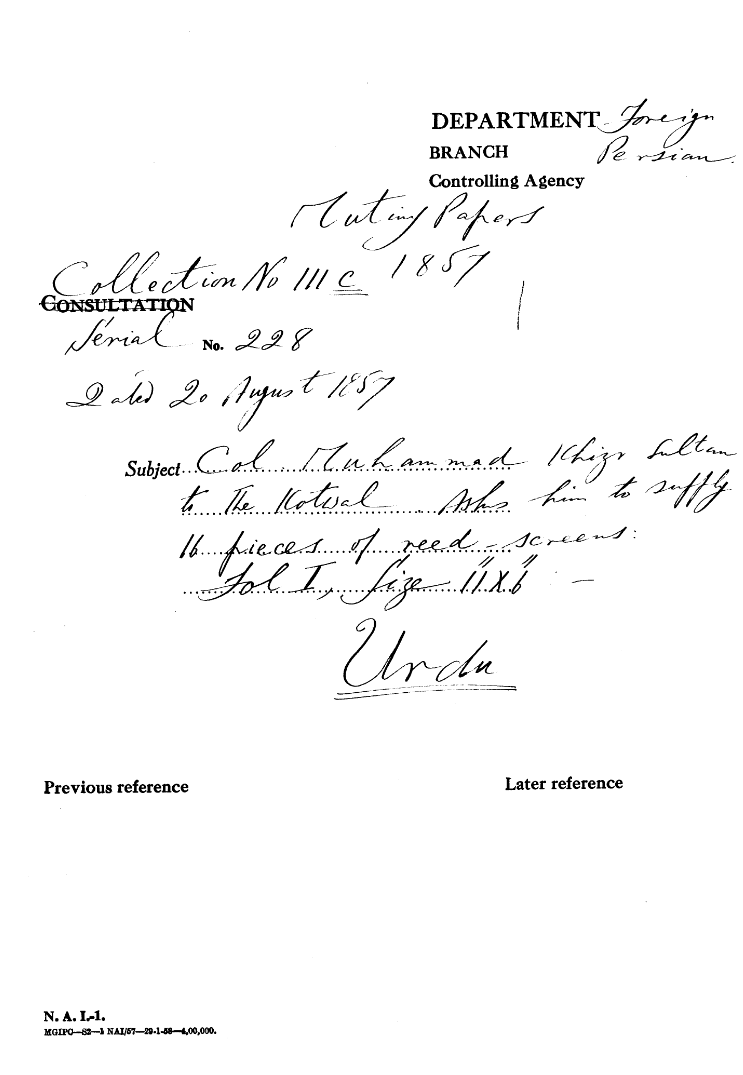 DEPARTMENT Foreign
BRANCH Persian
Controlling Agency
Mutiny Papers
Collection No III c 1857
CONSULTATION
Serial No. 228
Dated 20 August 1857
Subject Col Muhammad Khizr Sultan
to The Kotwal. Asks him to supply
16 pieces of reed-screens:
Fol I, Size 11" X 6" —
Urdu
Previous reference
Later reference
N. A. I.-1.
MGIPC—S2—1 NAI/57—29-1-58—4,00,000.